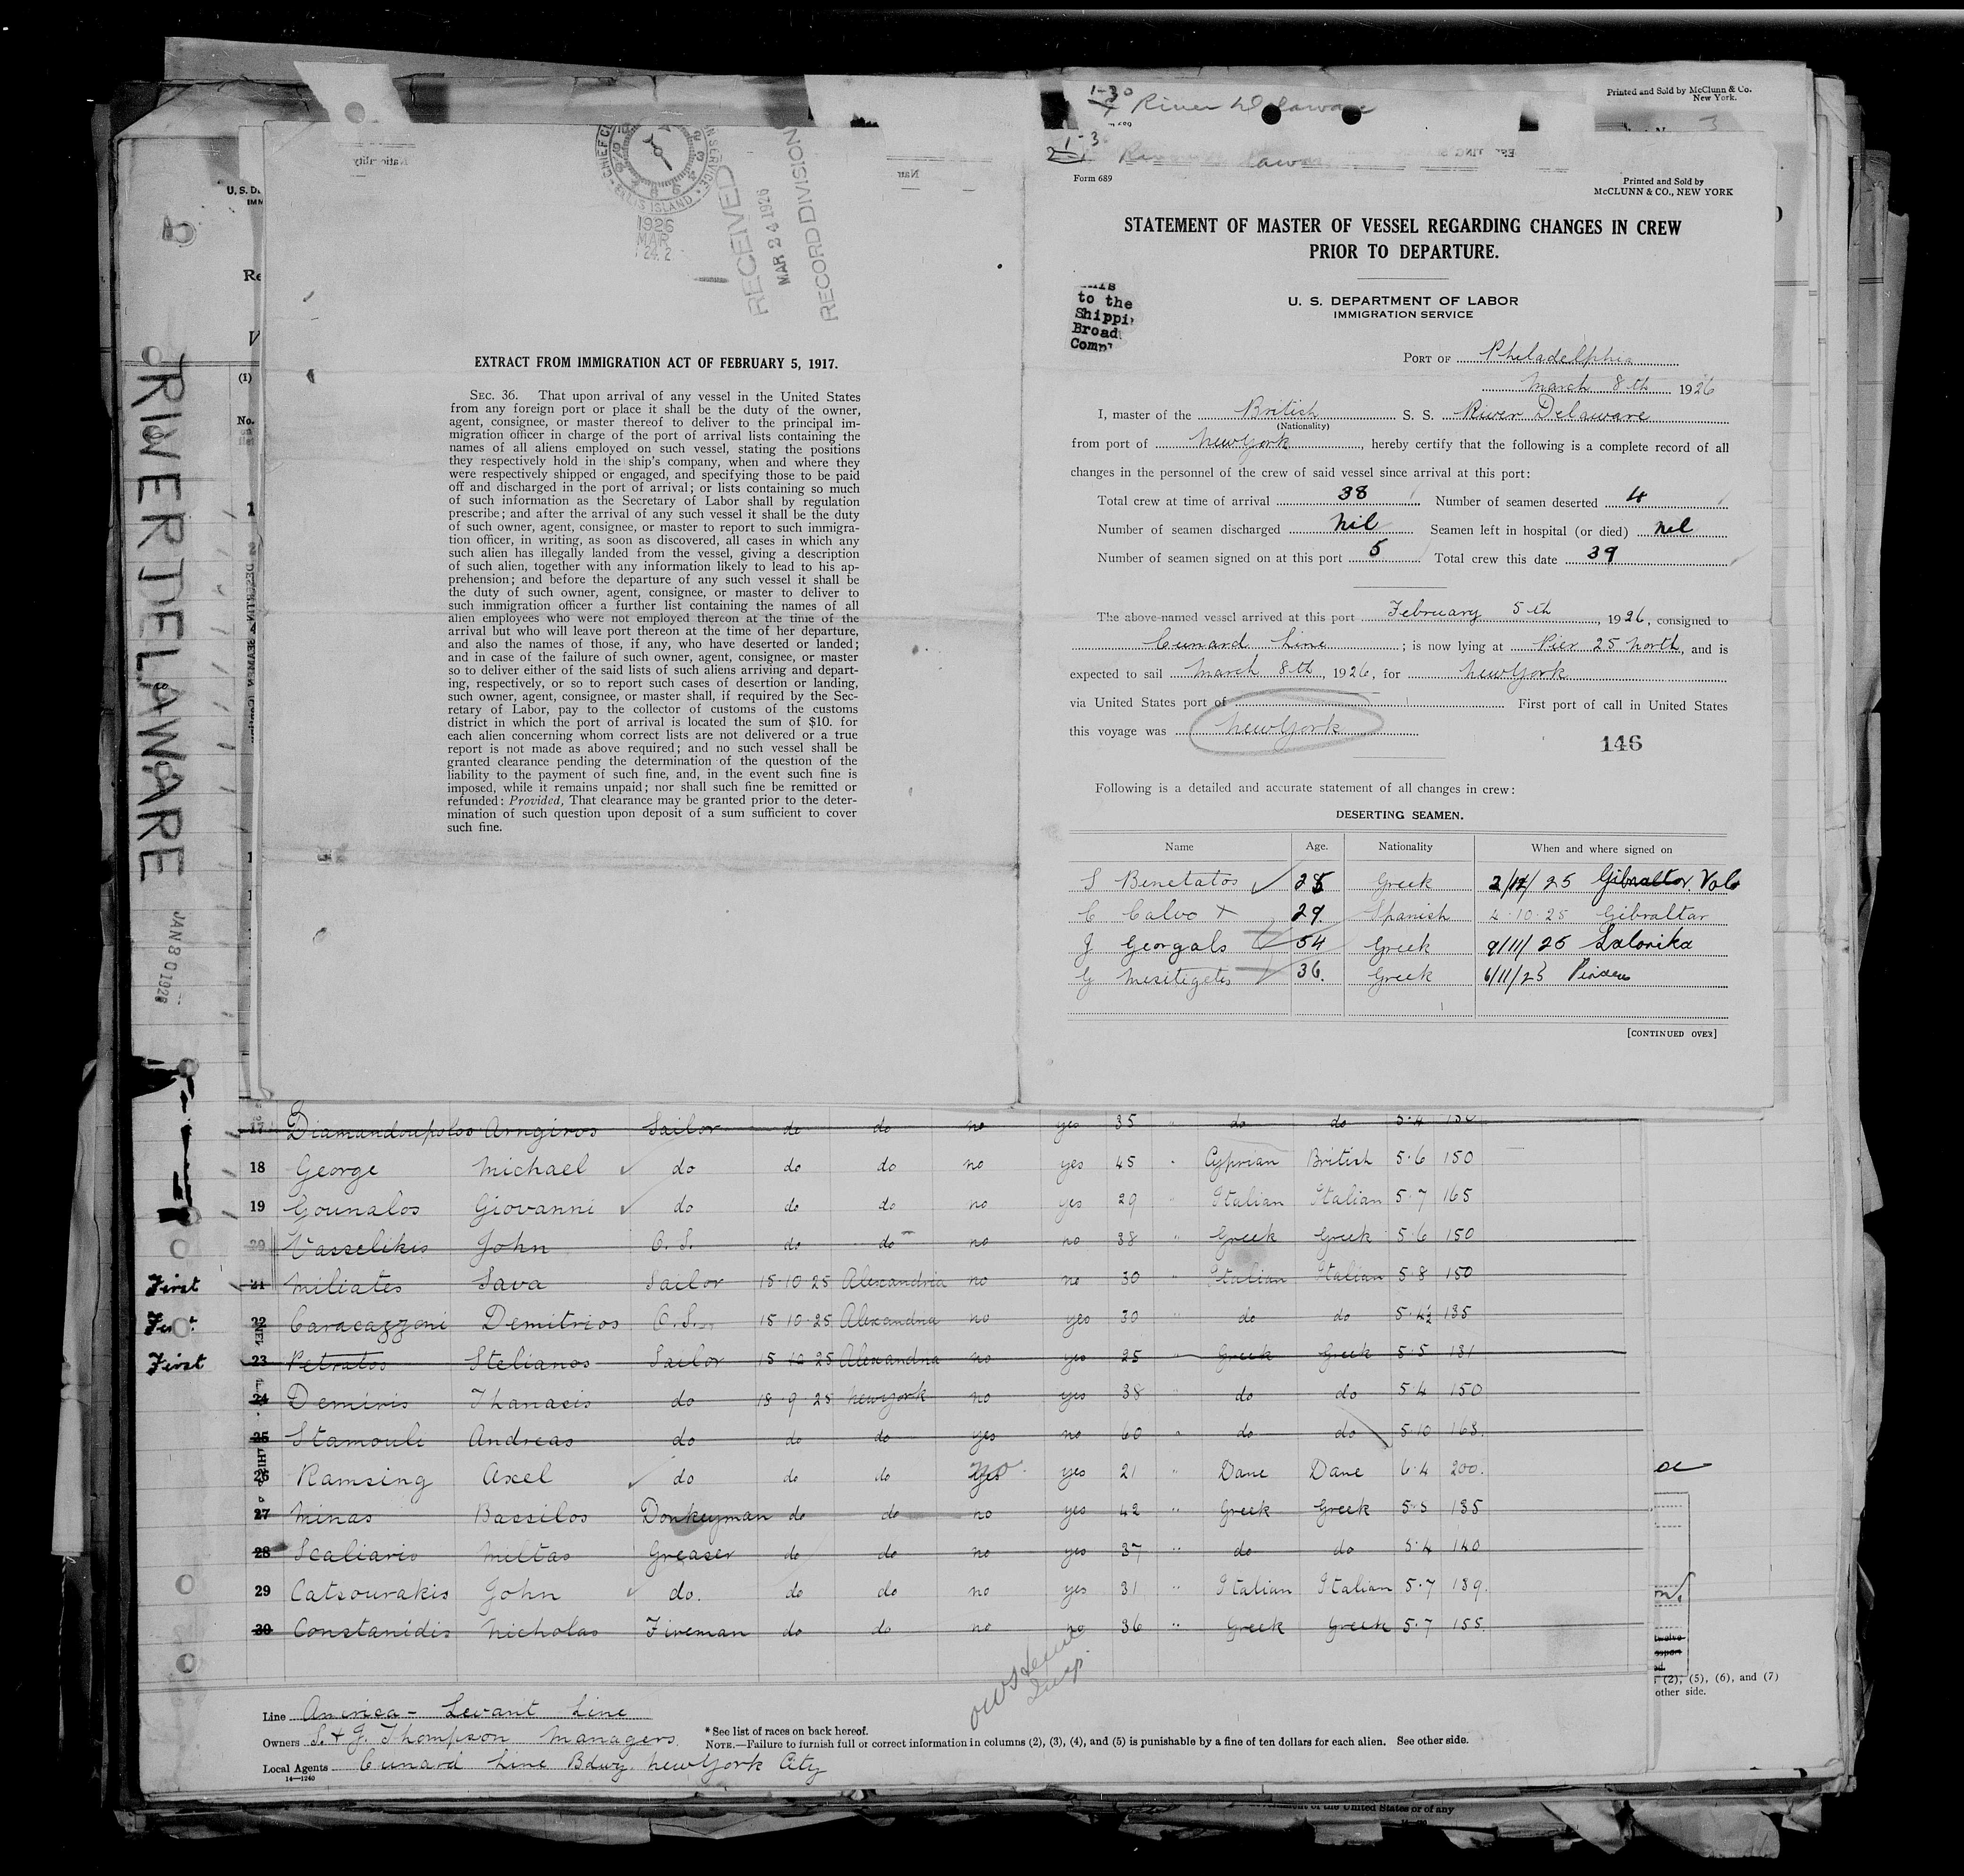 RIVER DELAWARE
JAN 30 1926
CHIEF CL
N SERVICE
ELLIS ISLAND
1926
MAR
24. 2
RECEIVED
MAR 24 1926
RECORD DIVISION
EXTRACT FROM IMMIGRATION ACT OF FEBRUARY 5, 1917.
SEC. 36. That upon arrival of any vessel in the United States
from any foreign port or place it shall be the duty of the owner,
agent, consignee, or master thereof to deliver to the principal im-
migration officer in charge of the port of arrival lists containing the
names of all aliens employed on such vessel, stating the positions
they respectively hold in the ship's company, when and where they
were respectively shipped or engaged, and specifying those to be paid
off and discharged in the port of arrival; or lists containing so much
of such information as the Secretary of Labor shall by regulation
prescribe; and after the arrival of any such vessel it shall be the duty
of such owner, agent, consignee, or master to report to such immigra-
tion officer, in writing, as soon as discovered, all cases in which any
such alien has illegally landed from the vessel, giving a description
of such alien, together with any information likely to lead to his ap-
prehension; and before the departure of any such vessel it shall be
the duty of such owner, agent, consignee, or master to deliver to
such immigration officer a further list containing the names of all
alien employees who were not employed thereon at the time of the
arrival but who will leave port thereon at the time of her departure,
and also the names of those, if any, who have deserted or landed;
and in case of the failure of such owner, agent, consignee, or master
so to deliver either of the said lists of such aliens arriving and depart-
ing, respectively, or so to report such cases of desertion or landing,
such owner, agent, consignee, or master shall, if required by the Sec-
retary of Labor, pay to the collector of customs of the customs
district in which the port of arrival is located the sum of $10. for
each alien concerning whom correct lists are not delivered or a true
report is not made as above required; and no such vessel shall be
granted clearance pending the determination of the question of the
liability to the payment of such fine, and, in the event such fine is
imposed, while it remains unpaid; nor shall such fine be remitted or
refunded: Provided, That clearance may be granted prior to the deter-
mination of such question upon deposit of a sum sufficient to cover
such fine.
1-30
River Delaware
Printed and Sold by McClunn & Co.
New York.
Form 689
Printed and Sold by
McCLUNN & CO., NEW YORK
STATEMENT OF MASTER OF VESSEL REGARDING CHANGES IN CREW
PRIOR TO DEPARTURE.
U. S. DEPARTMENT OF LABOR
IMMIGRATION SERVICE
to the
Shippi
Broad
Comp
PORT OF Philadelphia
March 8th 1926
I, master of the British S. S. River Delaware
(Nationality)
from port of New York, hereby certify that the following is a complete record of all
changes in the personnel of the crew of said vessel since arrival at this port:
Total crew at time of arrival 38 Number of seamen deserted 4
Number of seamen discharged Nil Seamen left in hospital (or died) Nil
Number of seamen signed on at this port 5 Total crew this date 39
The above-named vessel arrived at this port February 5th, 1926, consigned to
Cunard Line; is now lying at Pier 25 North, and is
expected to sail March 8th, 1926, for New York
via United States port of First port of call in United States
this voyage was New York
146
Following is a detailed and accurate statement of all changes in crew:
DESERTING SEAMEN.
Name Age. Nationality When and where signed on
S Benetatos 25 Greek 2/12/25 Gibraltar Volo
C Calvo x 29. Spanish 4·10·25 Gibraltar
J Georgals 54 Greek 9/11/25 Salonika
G Mesitegetes 36. Greek 6/11/25 Piraeus
[CONTINUED OVER]
17 Diamandoupolos Arngiros Sailor do do no yes 35 " do do 5·4 150
18 George Michael do do do no yes 45 " Cyprian British 5·6 150
19 Gounalos Giovanni do do do no yes 29 " Italian Italian 5·7 165
20 Vasselikis John O.S. do do no no 38 " Greek Greek 5·6 150
First 21 Miliates Sava Sailor 15·10·25 Alexandria no no 30 Italian Italian 5·8 150
22 Caracazzoni Demitrios O.S. 15·10·25 Alexandria no yes 30 " do do 5·4½ 135
First 23 Petratos Stelianos Sailor 15·10·25 Alexandria no yes 25 Greek Greek 5·5 131
24 Demiris Thanasis do 18·9·25 New York no yes 38 " do do 5·4 150
25 Stamouli Andreas do do do yes no 60 " do do 5·10 168.
26 Ramsing Axel do do do no yes 21 " Dane Dane 6·4 200.
27 Minas Bassilos Donkeyman do do no yes 42 " Greek Greek 5·5 135
28 Scaliaris Miltas Greaser do do no yes 37 " do do 5·4 140
29 Catsourakis John do. do do no yes 31 " Italian Italian 5·7 139.
30 Constanidis Nicholas Fireman do do no no 36 " Greek Greek 5·7 155.
(2), (5), (6), and (7)
other side.
Line America - Levant Line
Owners S. & J. Thompson Managers.
Local Agents Cunard Line Bdwy. New York City
14—1240
* See list of races on back hereof.
NOTE.—Failure to furnish full or correct information in columns (2), (3), (4), and (5) is punishable by a fine of ten dollars for each alien. See other side.
of the United States or of any